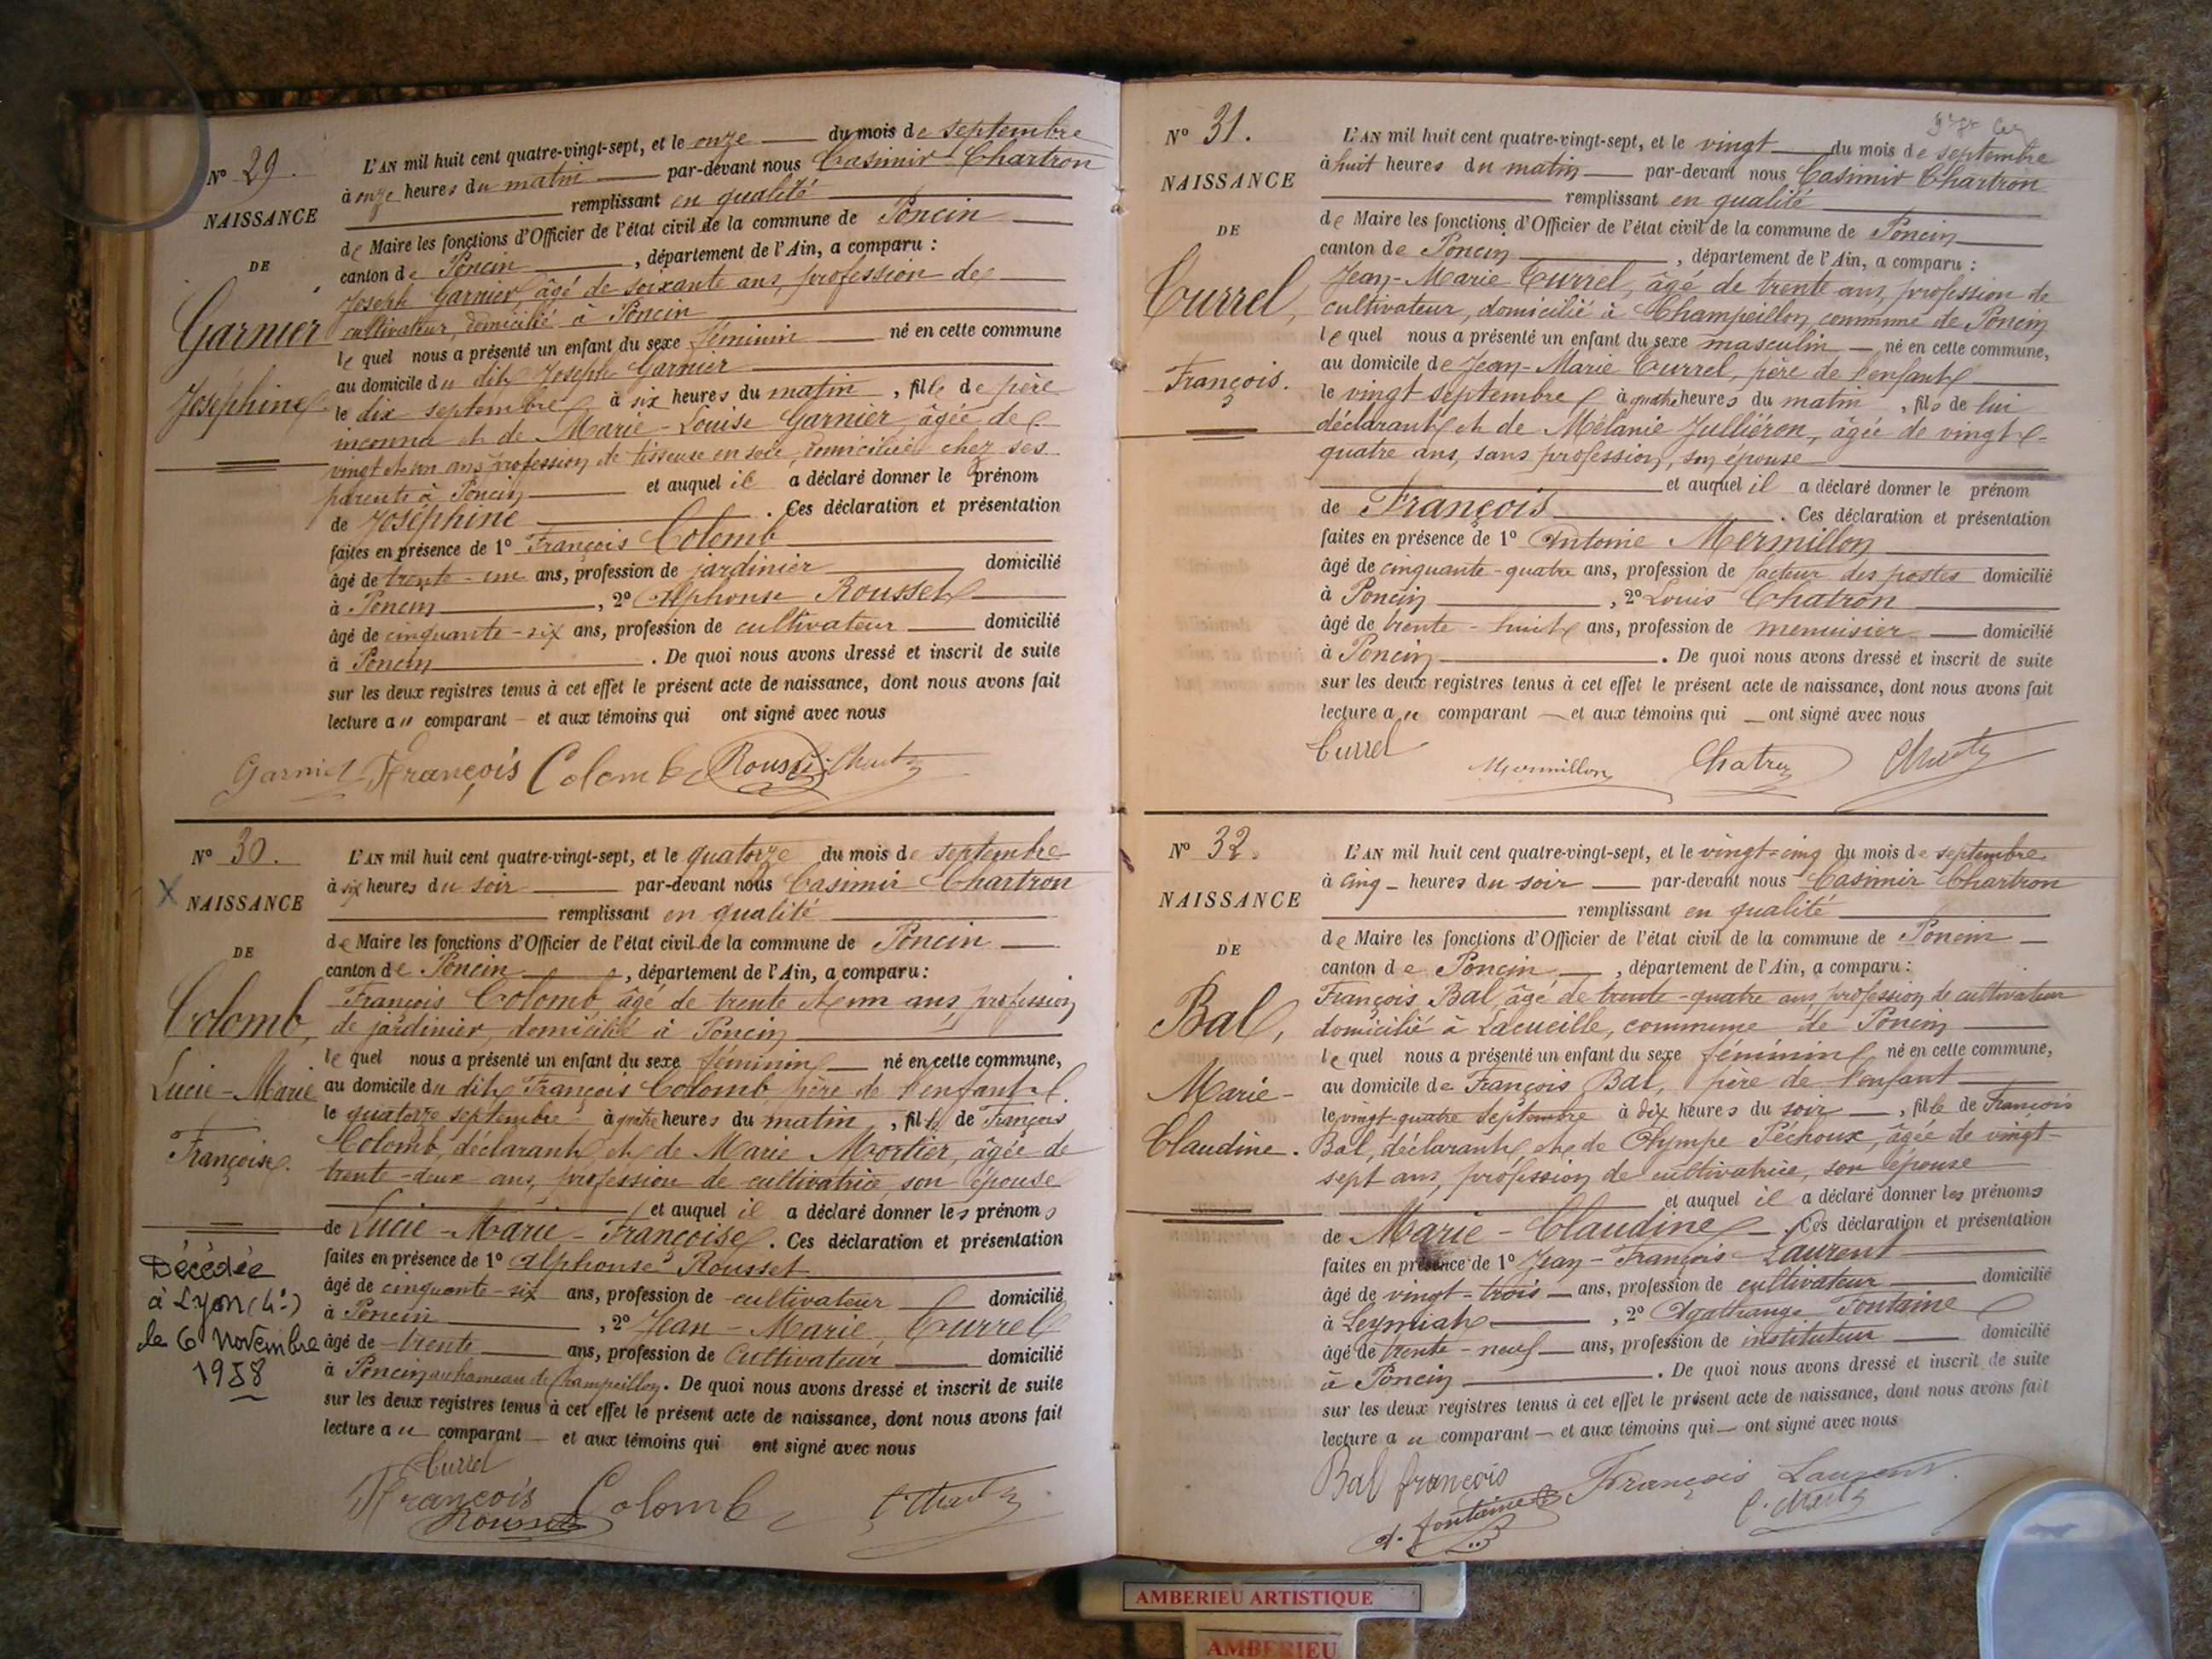 N° 29.
NAISSANCE
DE
Garnier
Joséphine
L'AN mil huit cent quatre-vingt-sept, et le onze du mois de septembre
à onze heures du matin par-devant nous Casimir Chartron
remplissant en qualité
de Maire les fonctions d'Officier de l'état civil de la commune de Poncin
canton de Poncin, département de l'Ain, a comparu :
Joseph Garnier, âgé de soixante ans, profession de
cultivateur, domicilié à Poncin
lequel nous a présenté un enfant du sexe féminin né en cette commune
au domicile du dit Joseph Garnier
le dix septembre à six heures du matin, fille de père
inconnu et de Marie-Louise Garnier, âgée de
vingt et un ans, profession de tisseuse en soie, domiciliée chez ses
parents à Poncin et auquel il a déclaré donner le prénom
de Joséphine. Ces déclaration et présentation
faites en présence de 1° François Colomb
âgé de trente-un ans, profession de jardinier domicilié
à Poncin, 2° Alphonse Rousset
âgé de cinquante-six ans, profession de cultivateur domicilié
à Poncin. De quoi nous avons dressé et inscrit de suite
sur les deux registres tenus à cet effet le présent acte de naissance, dont nous avons fait
lecture au comparant et aux témoins qui ont signé avec nous
Garnier François Colomb Rousset
N° 30.
X NAISSANCE
DE
Colomb,
Lucie-Marie
Françoise.
Décédée
à Lyon (4e)
le 6 Novembre
1958
L'AN mil huit cent quatre-vingt-sept, et le quatorze du mois de septembre
à six heures du soir par-devant nous Casimir Chartron
remplissant en qualité
de Maire les fonctions d'Officier de l'état civil de la commune de Poncin
canton de Poncin, département de l'Ain, a comparu :
François Colomb âgé de trente et un ans, profession
de jardinier, domicilié à Poncin
lequel nous a présenté un enfant du sexe féminin né en cette commune,
au domicile du dit François Colomb, père de l'enfant
le quatorze septembre à quatre heures du matin, fille de François
Colomb, déclarant et de Marie Mortier, âgée de
trente-deux ans, profession de cultivatrice, son épouse
et auquel il a déclaré donner les prénoms
de Lucie-Marie-Françoise. Ces déclaration et présentation
faites en présence de 1° Alphonse Rousset
âgé de cinquante-six ans, profession de cultivateur domicilié
à Poncin, 2° Jean-Marie Currel
âgé de trente ans, profession de Cultivateur domicilié
à Poncin au hameau de Champeillon. De quoi nous avons dressé et inscrit de suite
sur les deux registres tenus à cet effet le présent acte de naissance, dont nous avons fait
lecture au comparant et aux témoins qui ont signé avec nous
Currel
François Colomb
Rousset
N° 31.
NAISSANCE
DE
Currel,
François.
L'AN mil huit cent quatre-vingt-sept, et le vingt du mois de septembre
à huit heures du matin par-devant nous Casimir Chartron
remplissant en qualité
de Maire les fonctions d'Officier de l'état civil de la commune de Poncin
canton de Poncin, département de l'Ain, a comparu :
Jean-Marie Currel, âgé de trente ans, profession de
cultivateur, domicilié à Champeillon commune de Poncin
lequel nous a présenté un enfant du sexe masculin né en cette commune,
au domicile de Jean-Marie Currel, père de l'enfant
le vingt septembre à quatre heures du matin, fils de lui
déclarant et de Mélanie Julliéron, âgée de vingt-
quatre ans, sans profession, son épouse
et auquel il a déclaré donner le prénom
de François. Ces déclaration et présentation
faites en présence de 1° Antoine Mermillon
âgé de cinquante-quatre ans, profession de facteur des postes domicilié
à Poncin, 2° Louis Chatron
âgé de trente-huit ans, profession de menuisier domicilié
à Poncin. De quoi nous avons dressé et inscrit de suite
sur les deux registres tenus à cet effet le présent acte de naissance, dont nous avons fait
lecture au comparant et aux témoins qui ont signé avec nous
Currel Mermillon
N° 32.
NAISSANCE
DE
Bal,
Marie-
Claudine.
L'AN mil huit cent quatre-vingt-sept, et le vingt-cinq du mois de septembre
à cinq heures du soir par-devant nous Casimir Chartron
remplissant en qualité
de Maire les fonctions d'Officier de l'état civil de la commune de Poncin
canton de Poncin, département de l'Ain, a comparu :
François Bal, âgé de trente-quatre ans, profession de cultivateur
domicilié à Lacueille, commune de Poncin
lequel nous a présenté un enfant du sexe féminin né en cette commune,
au domicile de François Bal, père de l'enfant
le vingt-quatre Septembre à dix heures du soir, fille de François
Bal, déclarant et de Olympe Péchoux, âgée de vingt-
sept ans, profession de cultivatrice, son épouse
et auquel il a déclaré donner les prénoms
de Marie-Claudine. Ces déclaration et présentation
faites en présence de 1° Jean-François Laurent
âgé de vingt-trois ans, profession de cultivateur domicilié
à Leymiat, 2° Agathange Fontaine
âgé de trente-neuf ans, profession de instituteur domicilié
à Poncin. De quoi nous avons dressé et inscrit de suite
sur les deux registres tenus à cet effet le présent acte de naissance, dont nous avons fait
lecture au comparant et aux témoins qui ont signé avec nous
Bal françois François Laurent
A. fontaine
AMBERIEU ARTISTIQUE
AMBERIEU